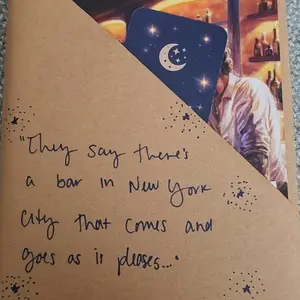 "They say there's
a bar in New York
City that comes and
goes as it pleases..."